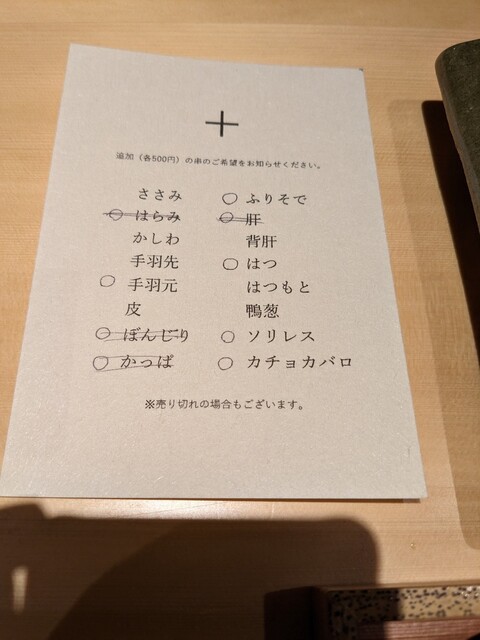 +
追加（各500円）の串のご希望をお知らせください。
ささみ
はらみ
かしわ
手羽先
手羽元
皮
ぼんじり
かっぱ
ふりそで
肝
背肝
はつ
はつもと
鴨葱
ソリレス
カチョカバロ
※売り切れの場合もございます。